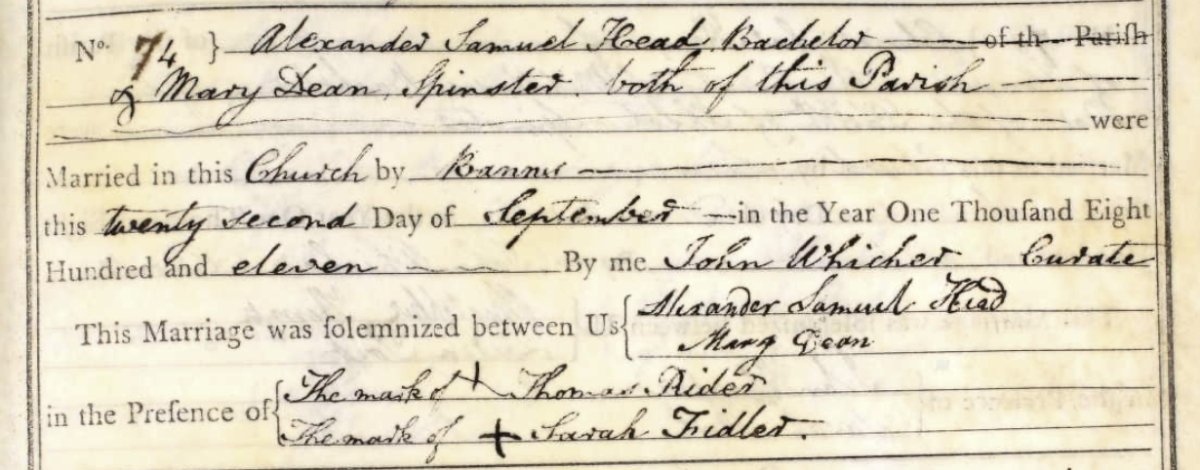 No. 74 } Alexander Samuel Head, Bachelor of th Pariſh
& Mary Dean, Spinster. both of this Parish
were
Married in this Church by Banns
this twenty second Day of September in the Year One Thouſand Eight
Hundred and eleven By me John Whicher Curate
This Marriage was ſolemnized between Us { Alexander Samuel Head
Mary Dean
in the Preſence of { The mark of + Thomas Rider
The mark of + Sarah Fidler.